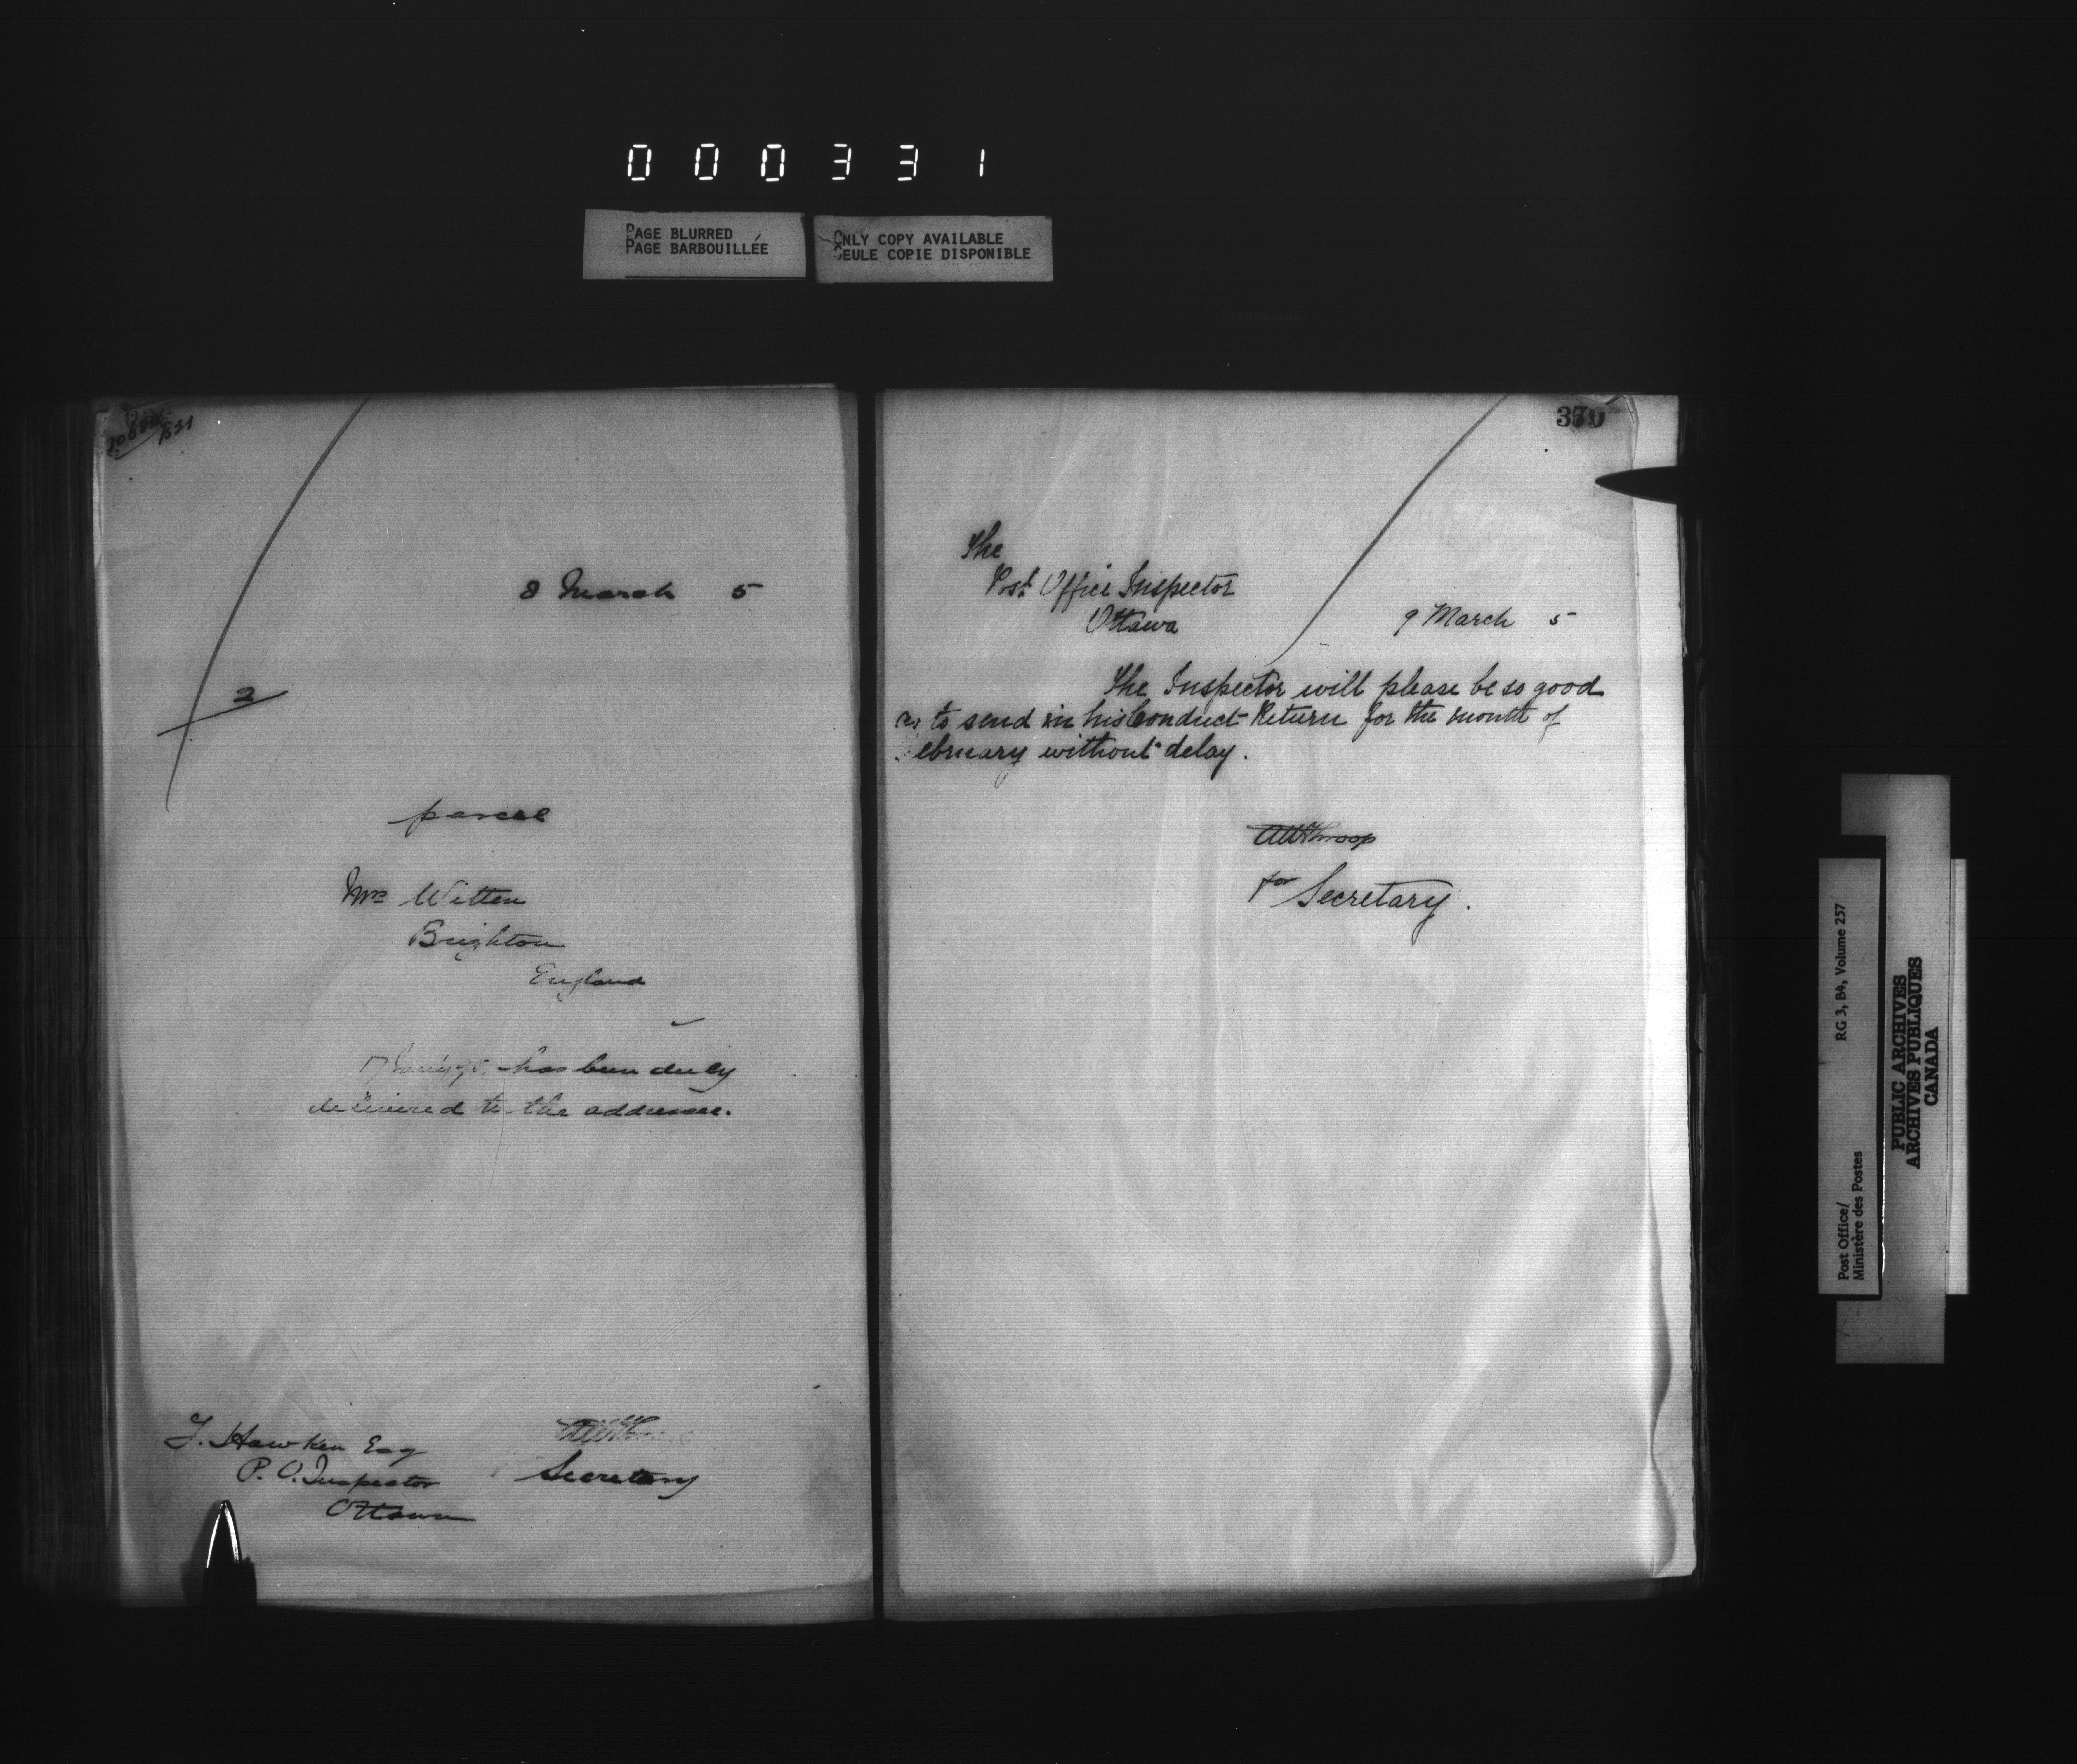 000331
PAGE BLURRED
PAGE BARBOUILLÉE
ONLY COPY AVAILABLE
SEULE COPIE DISPONIBLE
831
8 March 5
2
parcel
Mrs Witten
Brighton
England
has been duly
delivered to the addressee.
J. Hawken Esq
P. O. Inspector
Ottawa
Secretary
370
The
Post Office Inspector
Ottawa
9 March 5
The Inspector will please be so good
as to send in his Conduct Return for the month of
ebruary without delay.
AWThroop
for Secretary.
Post Office/
Ministère des Postes
RG 3, B4, Volume 257
PUBLIC ARCHIVES
ARCHIVES PUBLIQUES
CANADA